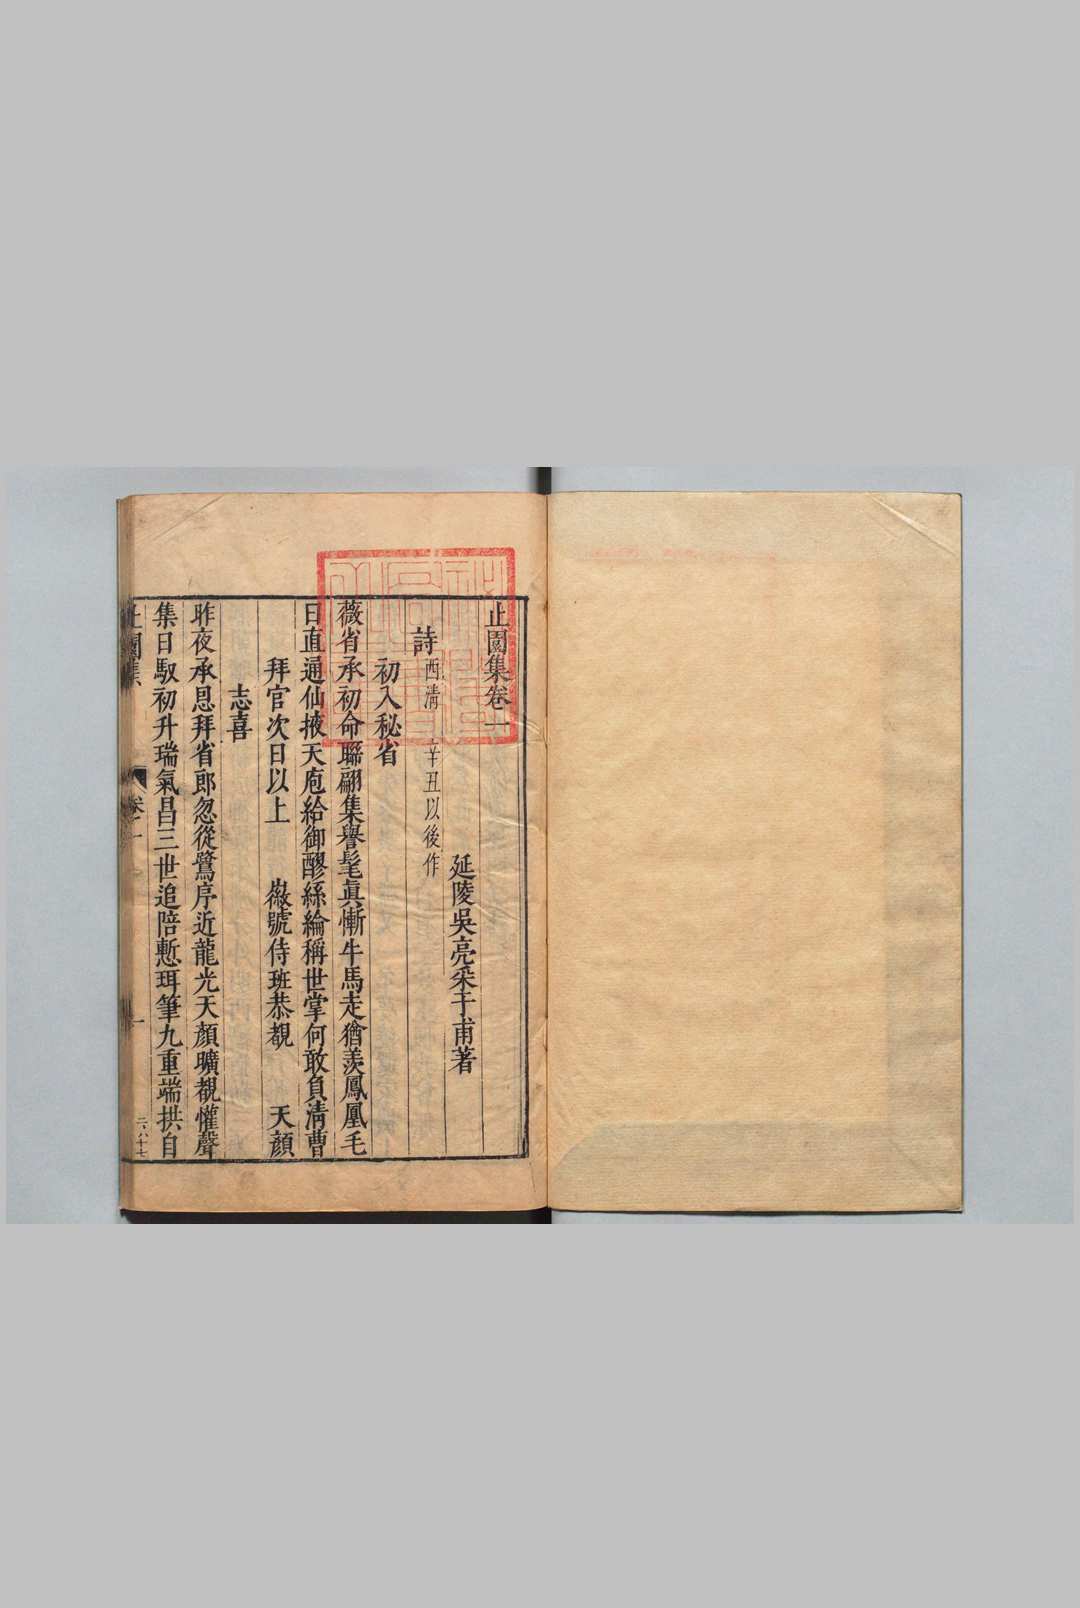 止園集卷一
延陵吳亮采于甫著
詩 西清 辛丑以後作
初入秘省
薇省承初命聯翩集譽髦眞慚牛馬走猶羨鳳凰毛
日直通仙掖天庖給御醪絲綸稱世掌何敢負淸曹
拜官次日以上 徽號侍班恭覩 天顔
志喜
昨夜承恩拜省郎忽從鷺序近龍光天顔曠覩懽聲
集日馭初升瑞氣昌三世追陪慙珥筆九重端拱自
止園集 卷一 一